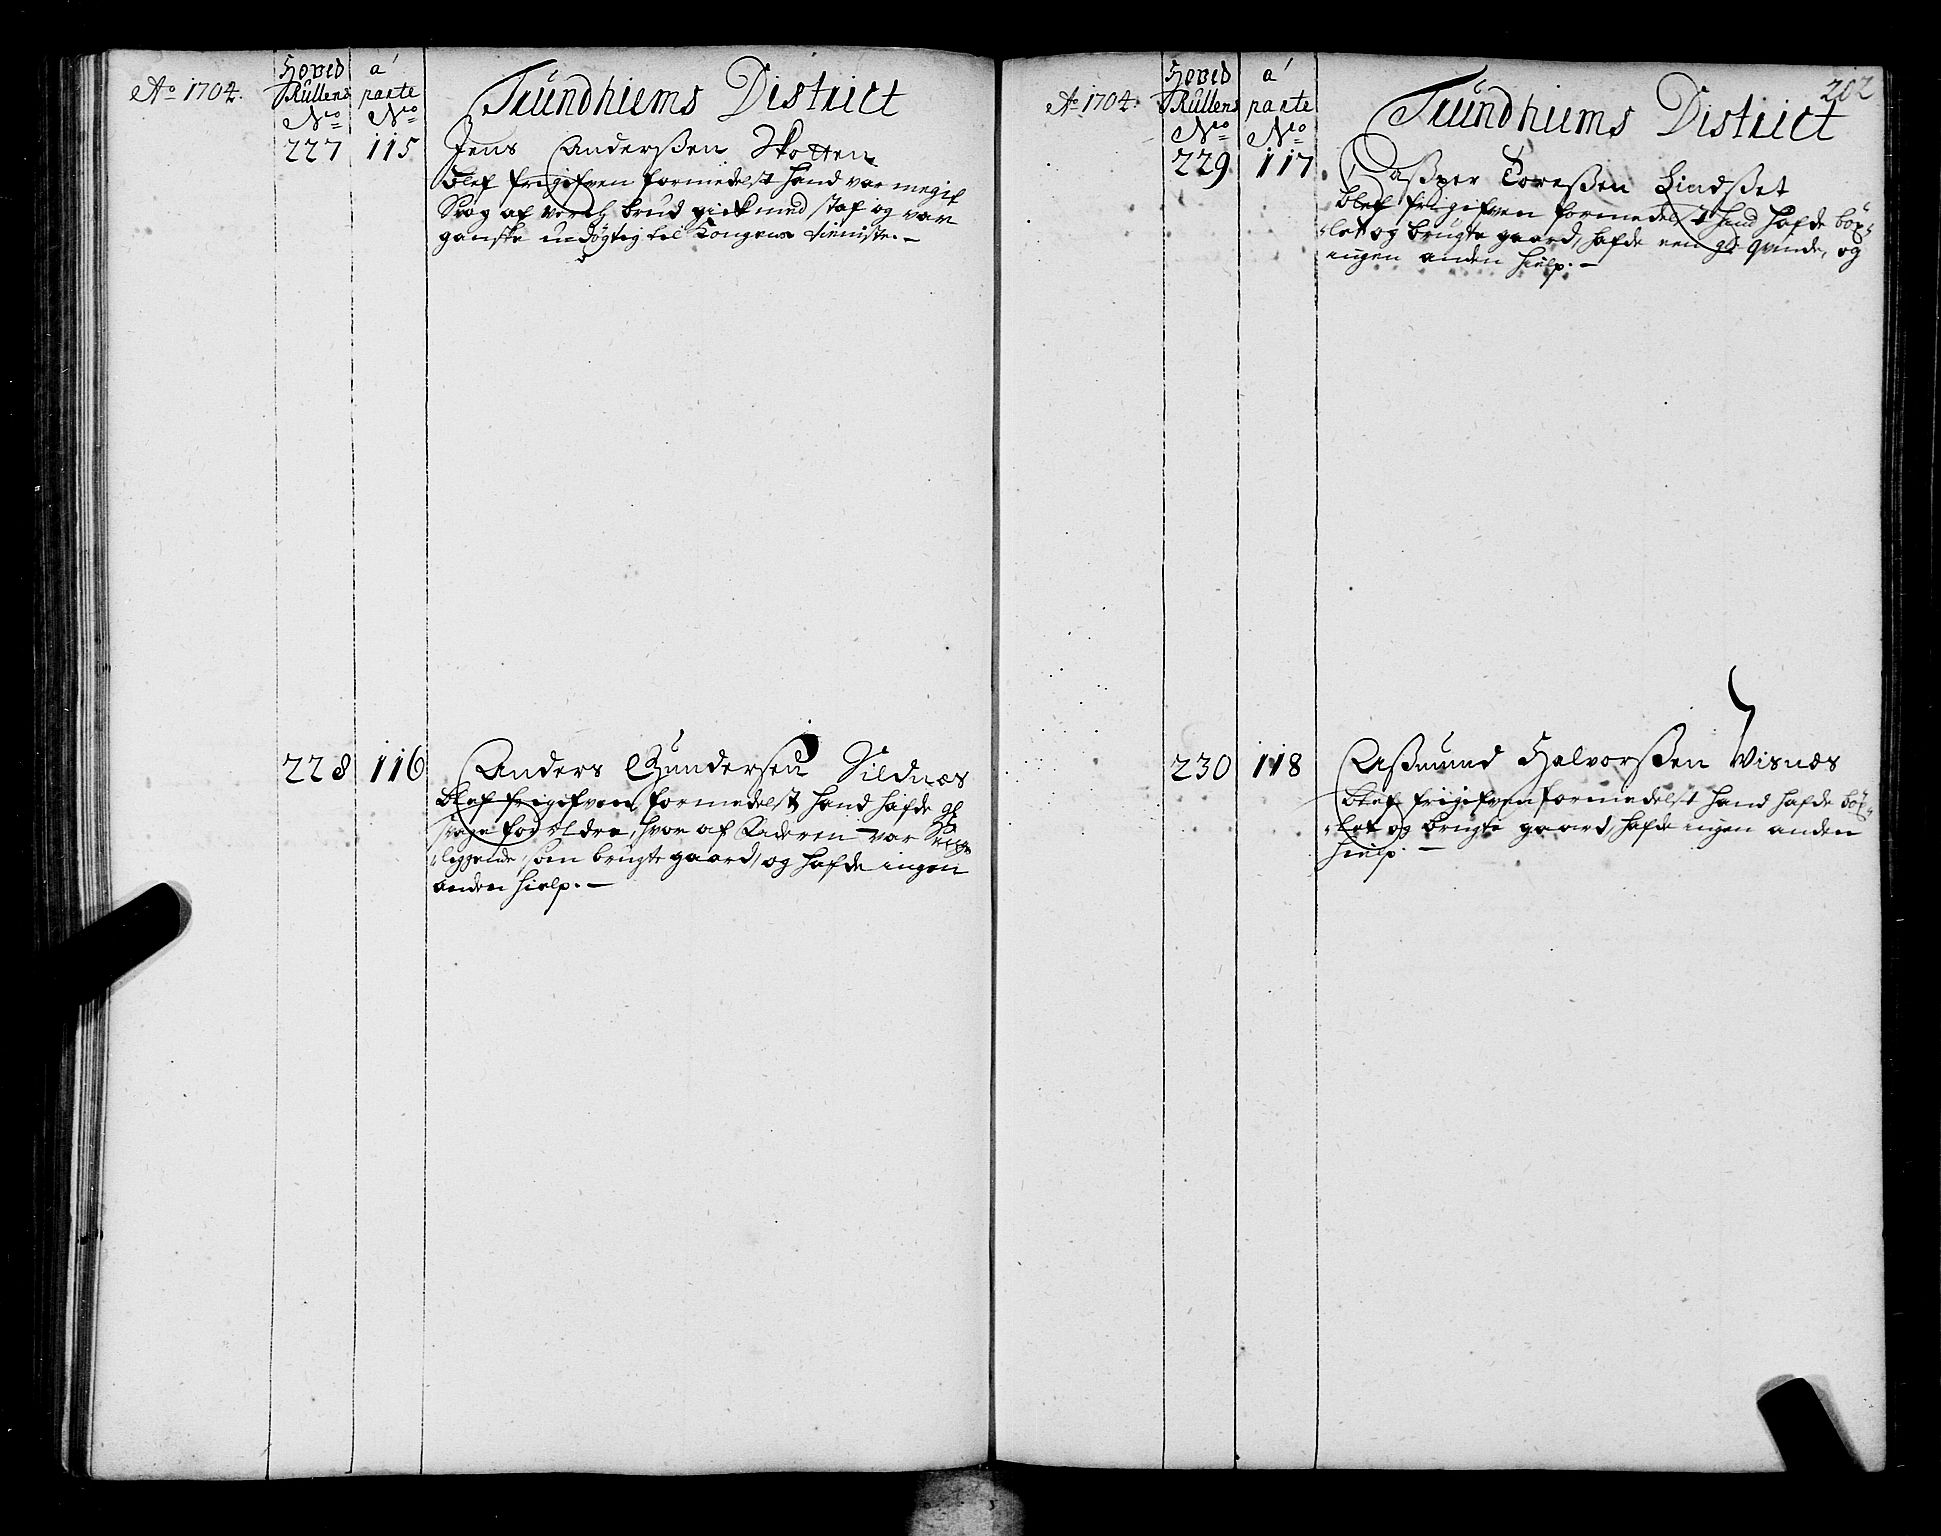 Ao 1704.
Hoved Rullens No
a' parte No
Trundhiems District
227 115 Jens Anderßen Skotten
blef frigifven formedelst hand var megit
Svag af brud gick med staf og var
ganske udøgtig til Kongens tieniste. —
228 116 Anders Gundersen Sildnæs
blef frigifven formedelst hand hafde gl
svage forældre, hvor af Faderen var Senge
leggende, som brugte gaard, og hafde ingen
anden hielp. —
202
Ao 1704.
Hoved Rullens No
a' parte No
Trundhiems District
229 117 Caßper Toreßen Lindßet
blef frigifven formedelst hand hafde böx-
-let og brugte gaard, hafde een gl qvinde, og
ingen anden hielp. —
230 118 Aßmund Halvorßen Visnæs
blef frigifven formedelst hand hafde böx-
-let og brugte gaard, hafde ingen anden
hielp. —